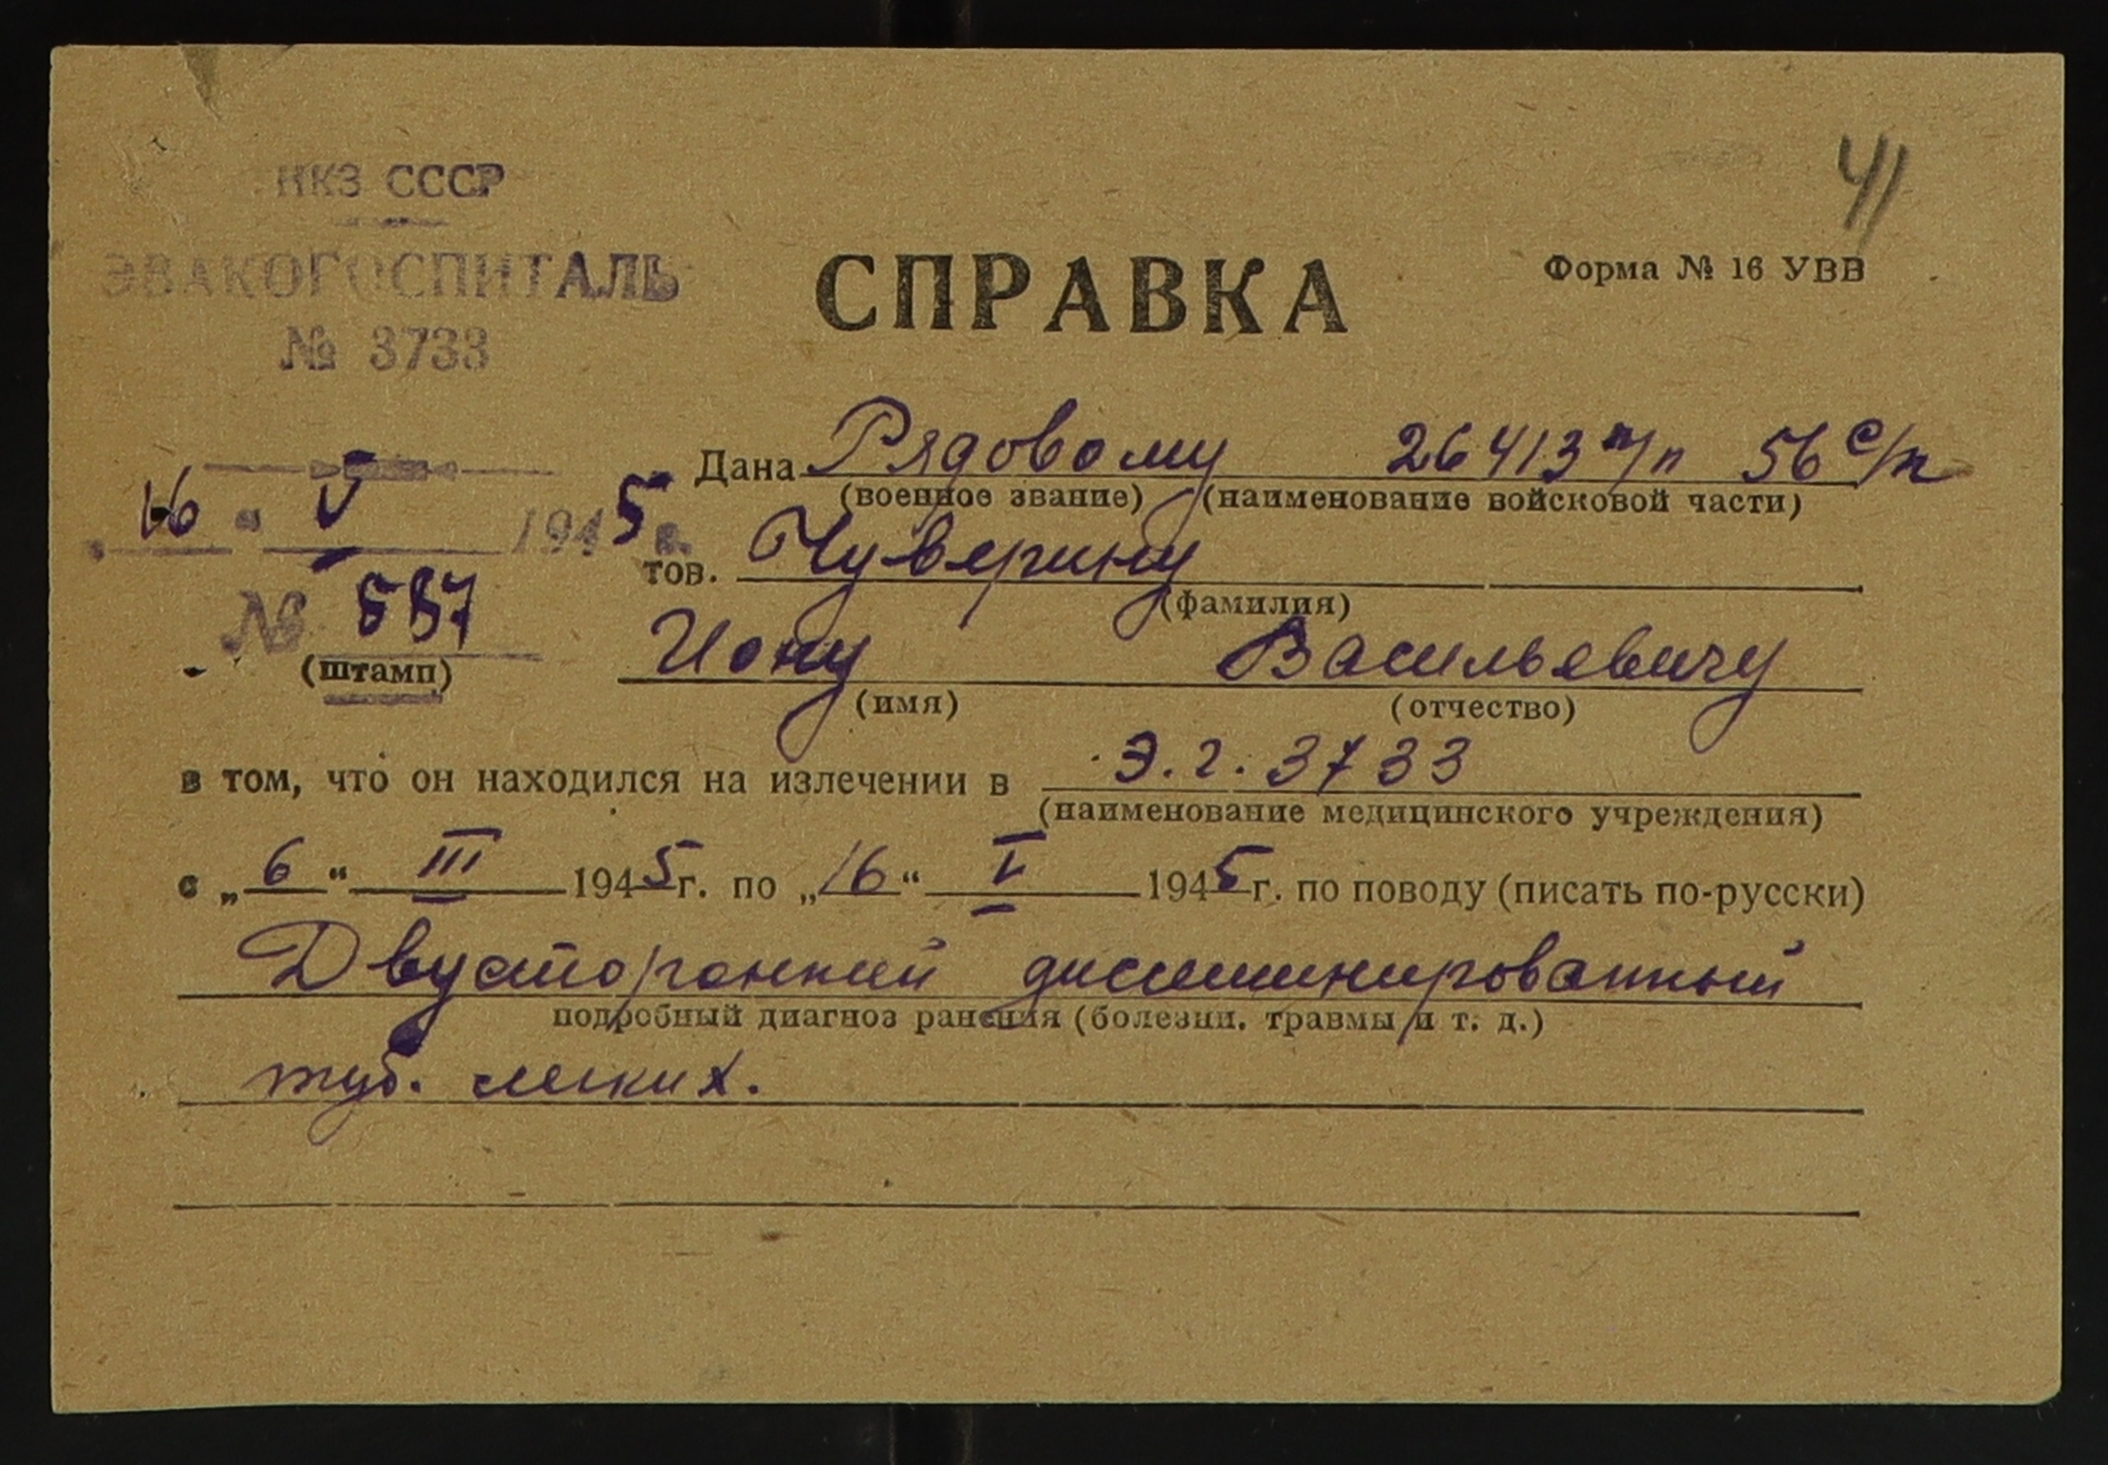 41
НКЗ СССР
ЭВАКОГОСПИТАЛЬ
№ 3733
СПРАВКА
Форма № 16 УВВ
Дана Рядовому 26413 п/п 56 с/п
(военное звание) (наименование войсковой части)
„16“ V 1945 г.
тов. Чуверину
(фамилия)
№ 587
(штамп)
Иону Васильевичу
(имя) (отчество)
в том, что он находился на излечении в Э.г. 3733
(наименование медицинского учреждения)
с „6“ III 1945 г. по „16“ V 1945 г. по поводу (писать по-русски)
Двусторонний диссеминированный
подробный диагноз ранения (болезни, травмы и т. д.)
туб. легких.